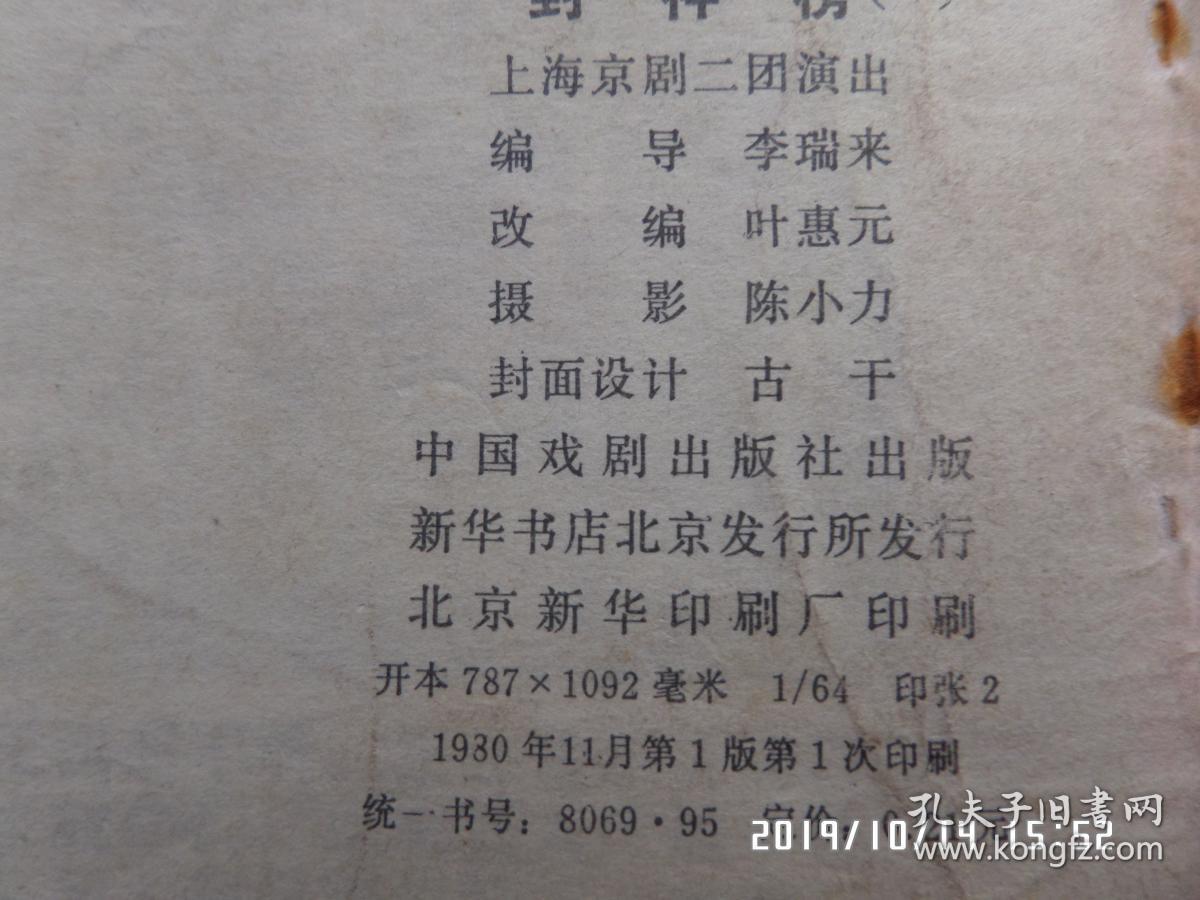 封神榜(
上海京剧二团演出
编 导 李瑞来
改 编 叶惠元
摄 影 陈小力
封面设计 古 干
中国戏剧出版社出版
新华书店北京发行所发行
北京新华印刷厂印刷
开本 787×1092 毫米 1/64 印张 2
1980 年 11 月第 1 版第 1 次印刷
统一书号：8069·95 定价：0.元
2019/10/14 15:52
孔夫子旧書网
www.kongfz.com